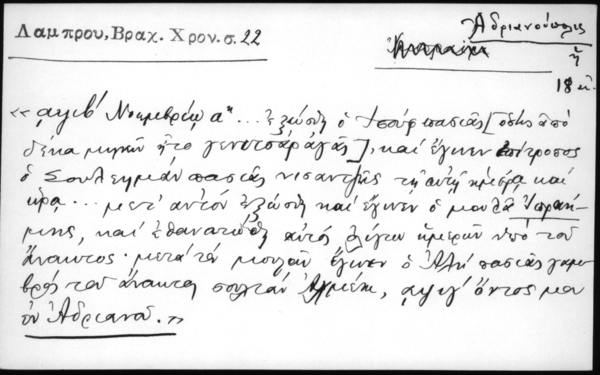 Λαμπρου, Βραχ. Χρον. σ. 22
Ἀδριανούπολις
ἢ
18 αἰ.
«͵αψιβʹ Νοεμβρίῳ αῃ... ἐξώσθη ὁ Ἰσοὺφ πασιᾶς [ὅστις ἀπὸ
δέκα μηνῶν ἦτο γενιτσάραγας], καὶ ἔγινεν ἐπίτροπος
ὁ Σουλεημὰν πασιᾶς νισαντζῆς τῇ αὐτῇ ἡμέρᾳ καὶ
ὥρᾳ... μετ' αὐτὸν ἐξώσθη καὶ ἔγινεν ὁ μουλᾶ Ἰμπραή-
μης, καὶ ἐθανατώθη αὐτὸς ὀλίγων ἡμερῶν ὑπὸ τοῦ
ἄνακτος· μετὰ τὸν μουλᾶν ἔγινεν ὁ Ἀλῆ πασιᾶς γαμ-
βρὸς τοῦ ἄνακτος σουλτὰν Ἀχμέτη, ͵αψιγʹ ὄντος μου
ἐν Ἀδριανοῦ.»